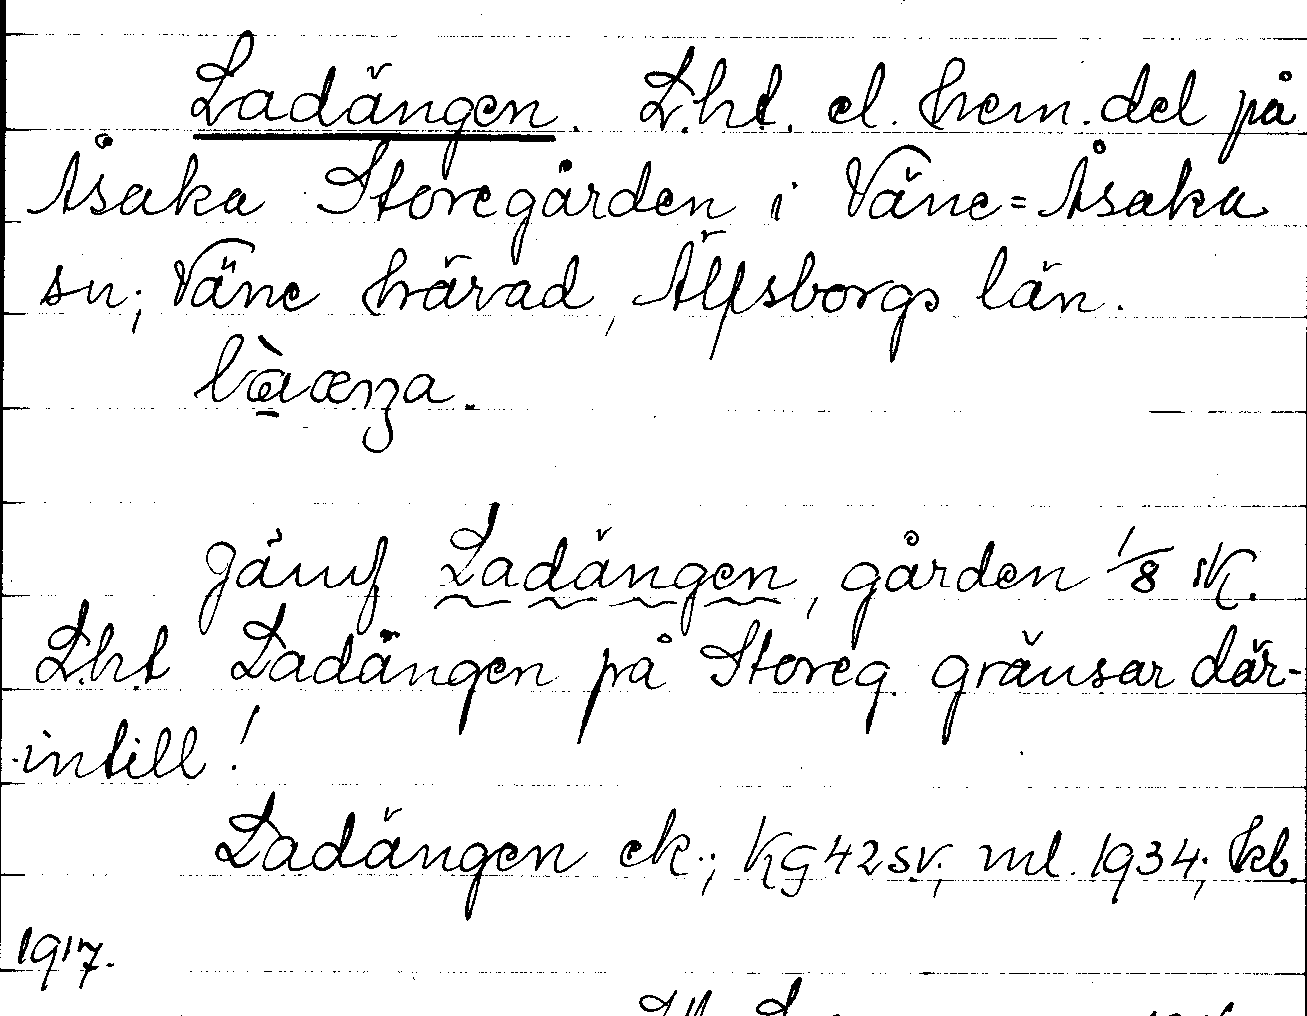 Ladängen. L.ht. el. hem. del på
Åsaka Storegården i Väne=Åsaka
sn; Väne härad, Älfsborgs län.
Jämf Ladängen, gården 1/8 M.
L.ht Ladängen på Storeg. gränsar där-
intill!
Ladängen ek.; KG42sv; ml. 1934; kb.
1917.